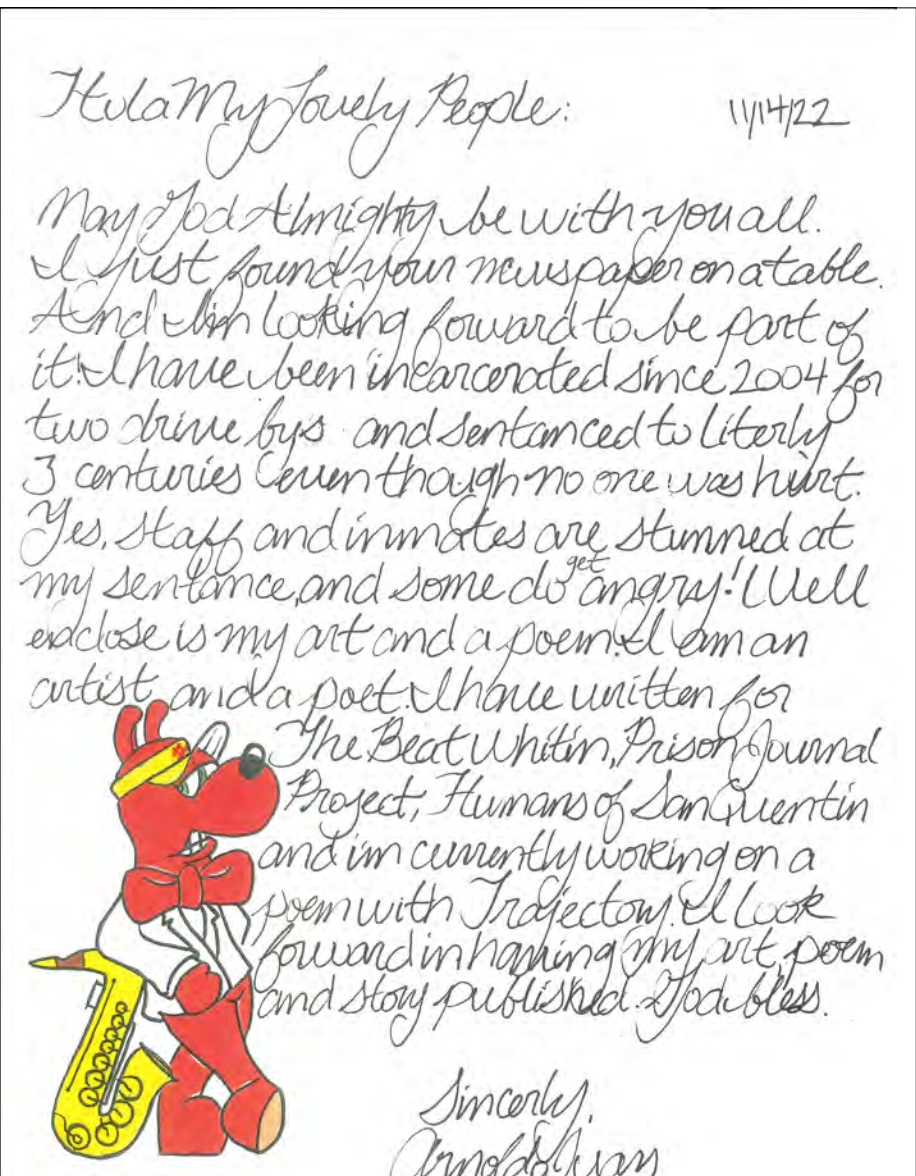 Hola My Lovely People:
11/14/22
May God Almighty be with you all.
I just found your newspaper on a table.
And I im looking forward to be part of
it. I have been incarcerated since 2004 for
two drive bys and sentanced to literly
3 centuries even though no one was hurt.
Yes, staff and inmates are stunned at
my sentance, and some do get angry! Well
enclose is my art and a poem. I am an
artist and a poet. I have written for
The Beat Whitin, Prison Journal
Project, Humans of San Quentin
and im currently working on a
poem with Trajectory. I look
forward in having my art, poem
and story published. God bless.
Sincerly,
Arnoldo Juan